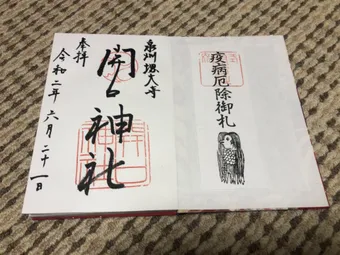 泉州堺大寺
開口神社
奉拝
令和二年六月二十一日
疫病厄除御札